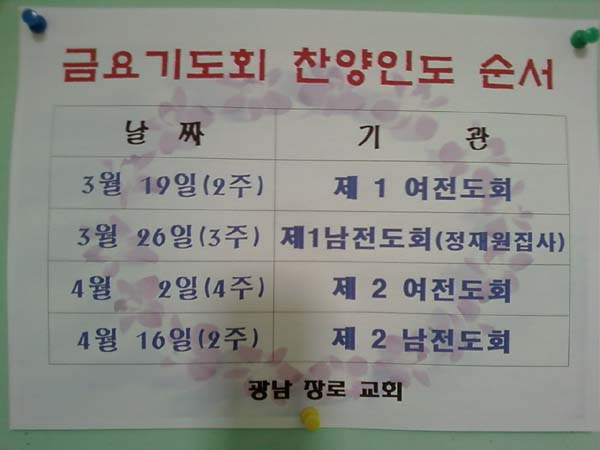 금요기도회 찬양인도 순서
날 짜 기 관
3월 19일(2주) 제 1 여전도회
3월 26일(3주) 제1남전도회(정재원집사)
4월 2일(4주) 제 2 여전도회
4월 16일(2주) 제 2 남전도회
광남 장로 교회